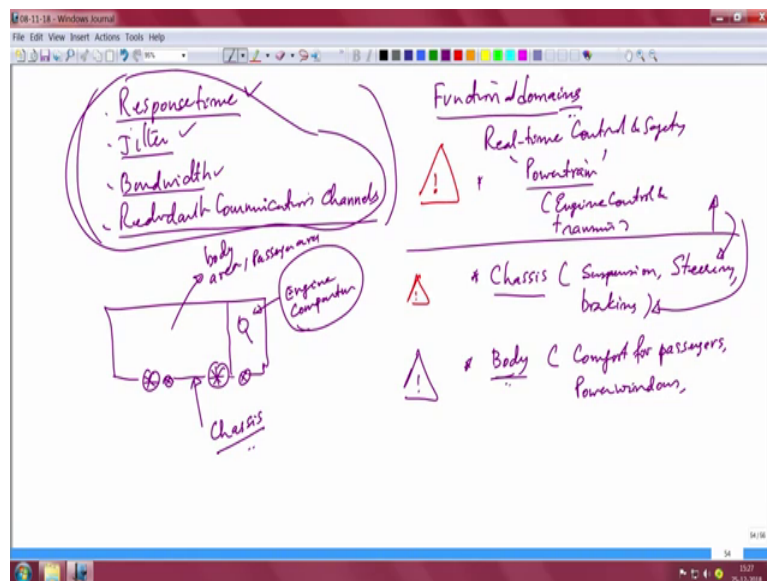 08-11-18 - Windows Journal
File Edit View Insert Actions Tools Help
90%
Response time
Jitter
Bandwidth
Redundant Communication Channels
body
area, Passenger area
Engine
Compartm
Chassis
Functional domains
Real-time Control & Safety
'Powertrain'
(Engine Control &
* Chassis (Suspension, Steering,
braking)
* Body (Comfort for passengers,
Power windows,
54/56
54
15:27